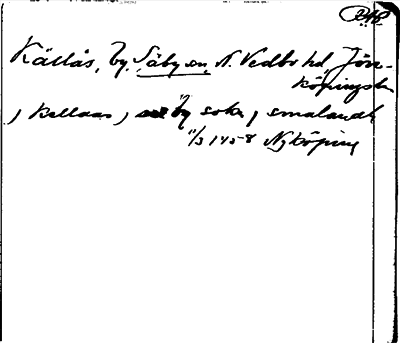 Källås, by, Säby sn, N. Vedbo hd, Jön-
köpings
, kellaas, säby sokn, smalandh
11/3 1458 Nyköping